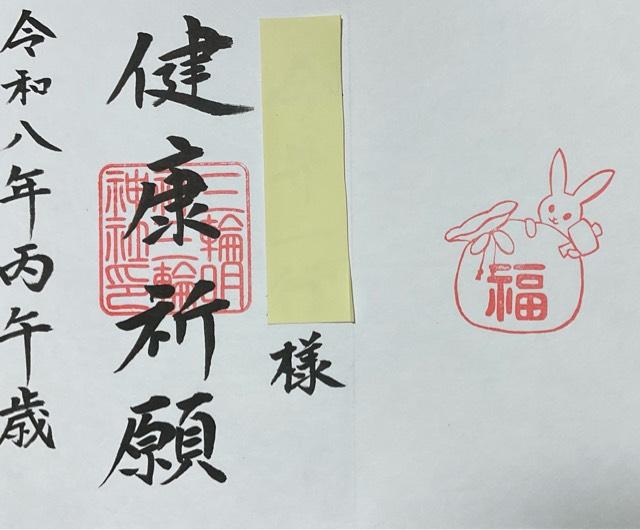 福
様
健康祈願
三輪明
神三輪
神社印
令和八年丙午歳